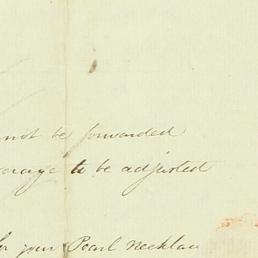 not be forwarded
to be adjusted
for your Pearl Necklace